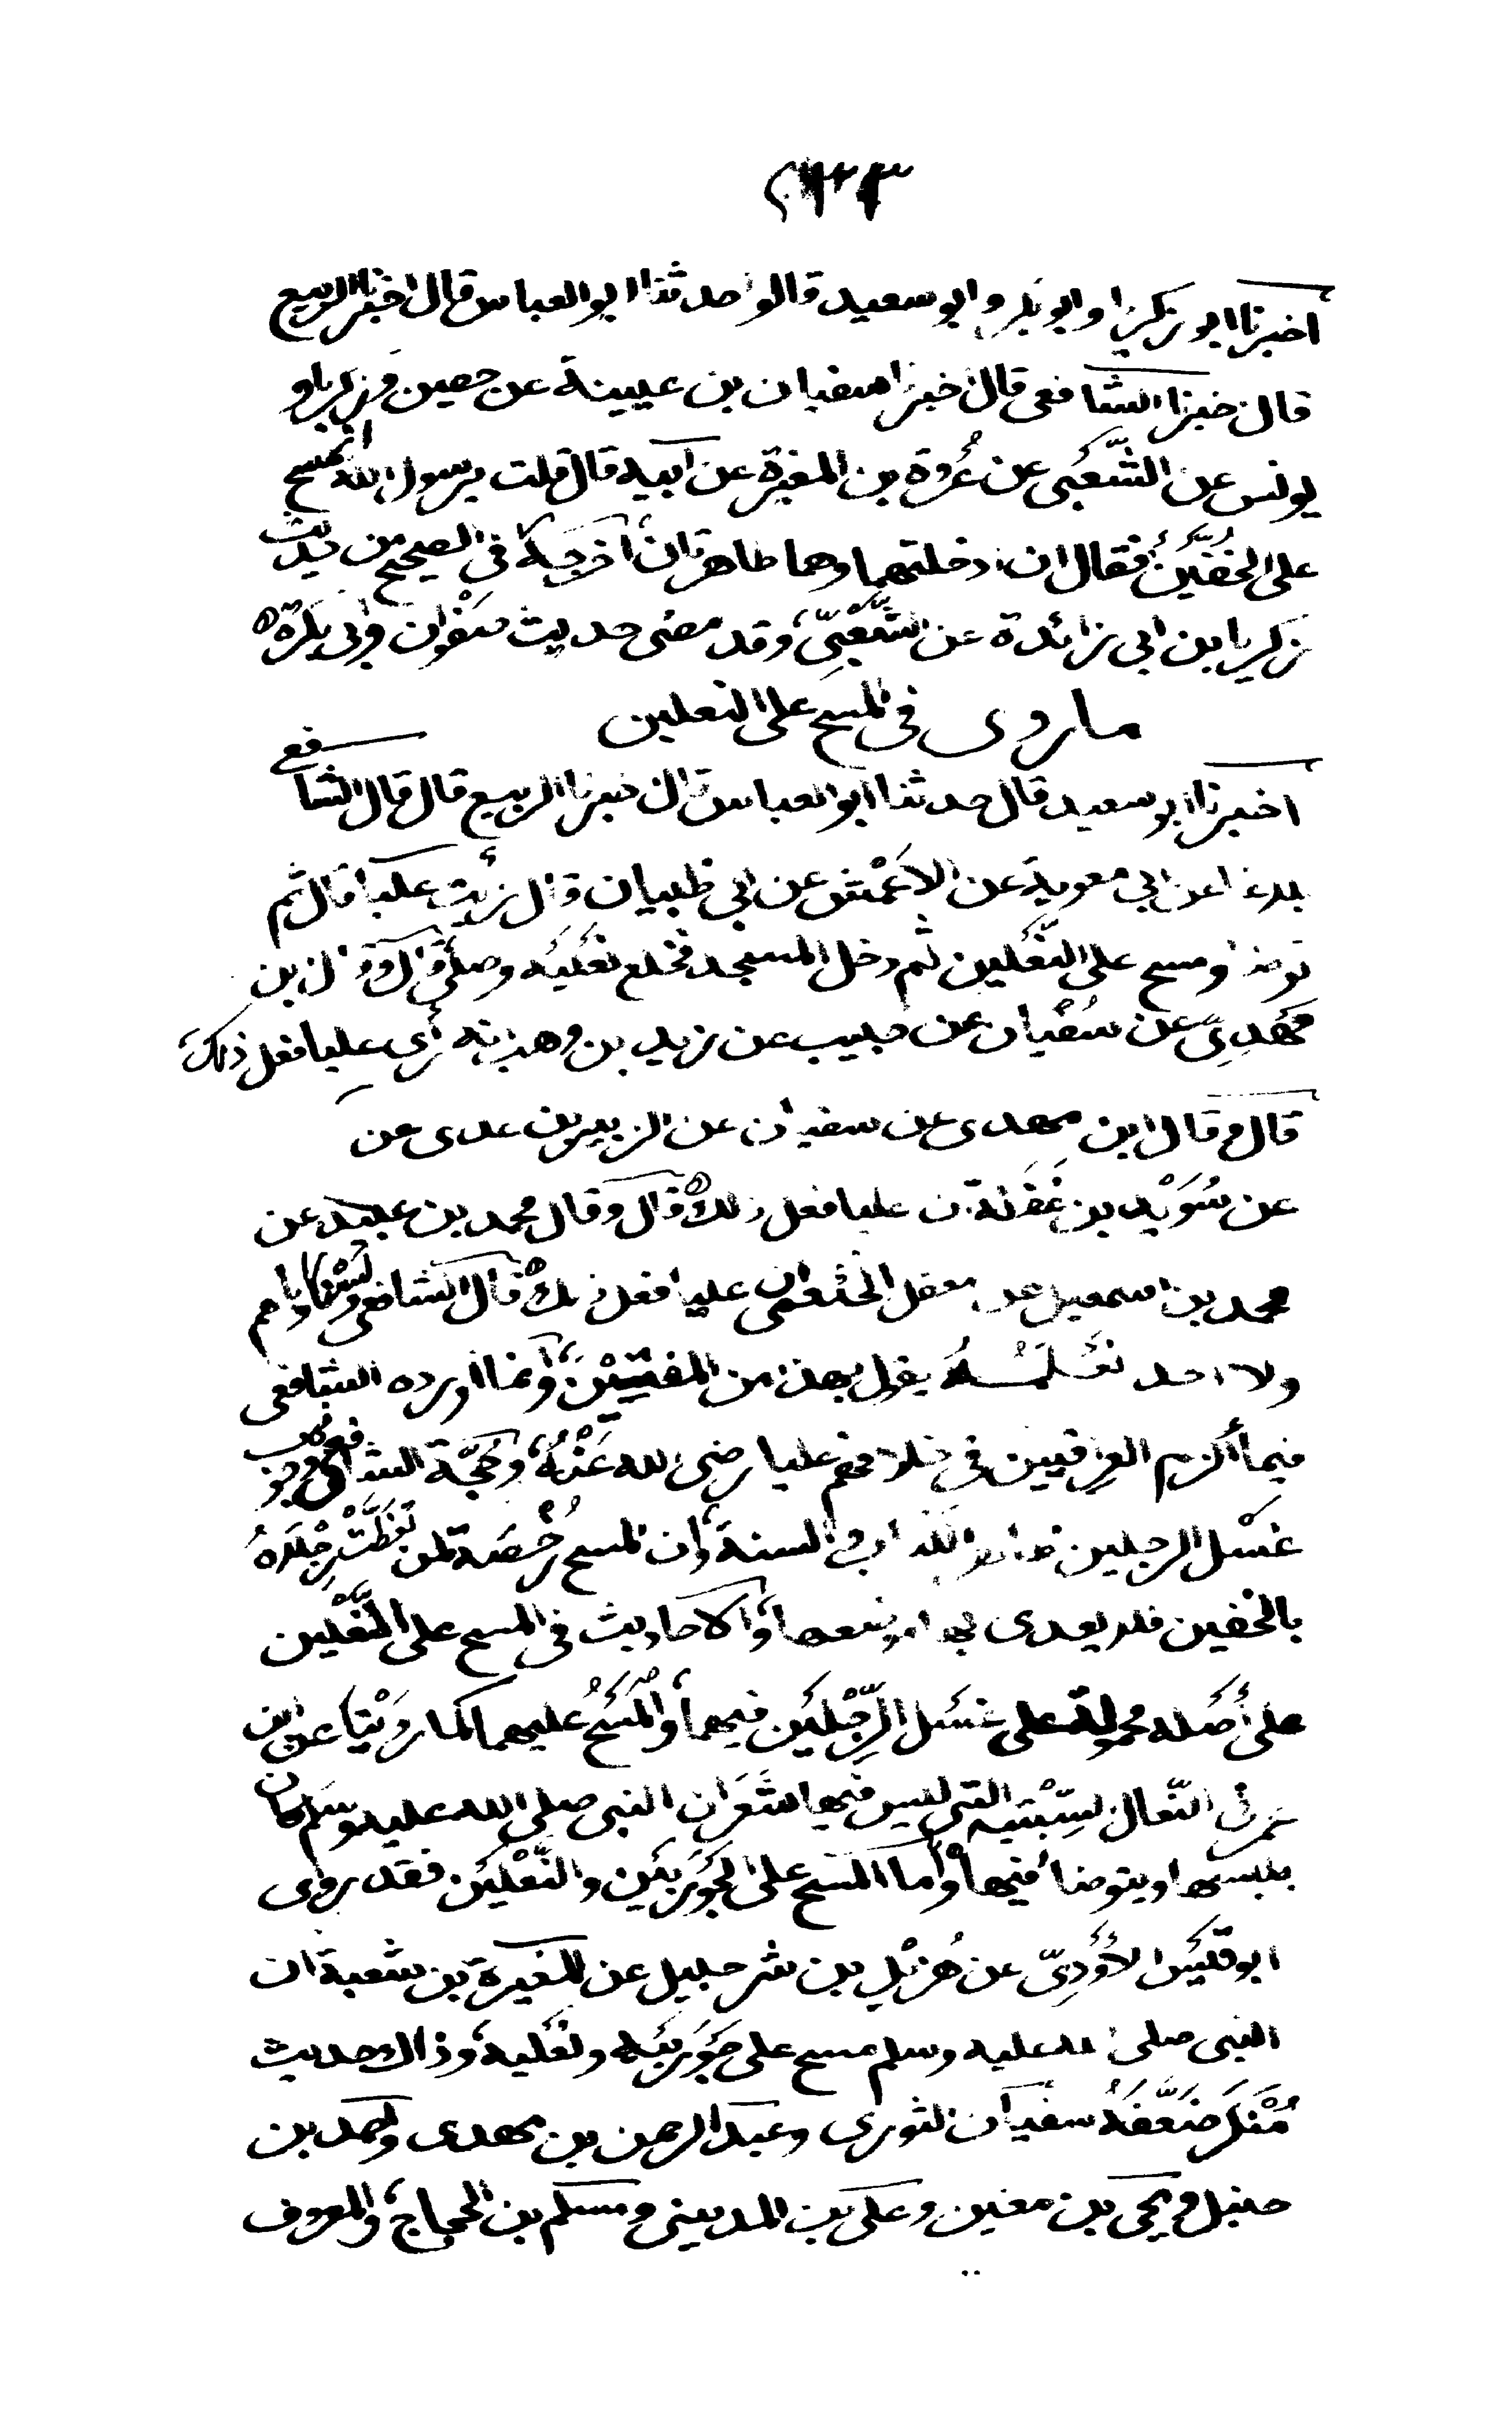 اخبرنا ابو زكريا وابو بكر وابو سعيد قالوا حدثنا ابو العباس قال اخبرنا الربيع
قال اخبرنا الشافعى قال اخبرنا سفيان بن عيينة عن حصين وزكريا و
يونس عن الشَّعْبى عن عُرْوة بن المغيرة عن ابيه قال قلت يرسول الله اتمسح
على الخُفَّيْن فقال ان ادخلتهما وهما طاهرتان اخرجه فى الصحيح من حديث
زكريا بن ابى زائدة عن الشَّعْبِىّ وقد مضى حديث صفوان وابى بكرة
ما روى فى المسح على النعلين
اخبرنا ابو سعيد قال حدثنا ابو العباس قال اخبرنا الربيع قال قال الشافعى
بلاغا عن ابى معوية عن الاَعْمش عن ابى ظبيان قال رأيت عليا قال ثم
توضا ومسح على النَّعْلين ثم دخل المسجد فخلع نَعْلَيْه وصلى قال وقال ابن
مَهْدِىّ عن سُفْيان عن حبيب عن زيد بن وهب انه رأى عليا فعل ذلك
قال وقال ابن مهدى عن سفيان عن الزبير بن عدى عن
عن سُوَيْد بن غَفَلة ان عليا فعل ذلك قال وقال محمد بن عبيد عن
محمد بن اسمعيل عن معقل الخثعمى ان عليا فعل ذلك قال الشافعى ولسْنا ولا هم
ولا احد نَعْلَمُهُ يقول بهذا من المفتِيْن وانما اورده الشافعى
فيما أَلْزم العراقيين فى خلافهم عليا رضى الله عَنْهُ وحُجَّة الشافعى فى وجوب
غَسْل الرجلين ظاهر الكتاب والسنة وان المسح رُخْصَة لمن تَغَطَّتْ رِجْلَاهُ
بالخفين فلا يعدى بها موضعها والاحاديث فى المسح على النَّعْلَين
على أَصْله محمولة على غَسْل الرِّجْلَيْن فيهما والْمَسْحُ عليهما كما رَوَيْنا عن ابن
عمر فى النّعال السِّبْتيه التى ليس فيها شَعَر ان النبى صلى الله عليه وسلم كان
يلبسها ويتوضأ فيها وأما المَسْح على الجَوْرَبَيْن والنَّعْلَيْن فقد روى
ابو قَيْس الأَوْدِىّ عن هُزَيْل بن شرحبيل عن المغيرة بن شعبة ان
النبى صلى الله عليه وسلم مسح على جَوْرَبَيْه ونَعْليه وذاك حديث
مُنْكَر ضَعَّفَهُ سفيان الثورى وعبد الرحمن بن مهدى واحمد بن
حنبل ويحيى بن معين وعلى بن المدينى ومسلم بن الحجاج والمعروف